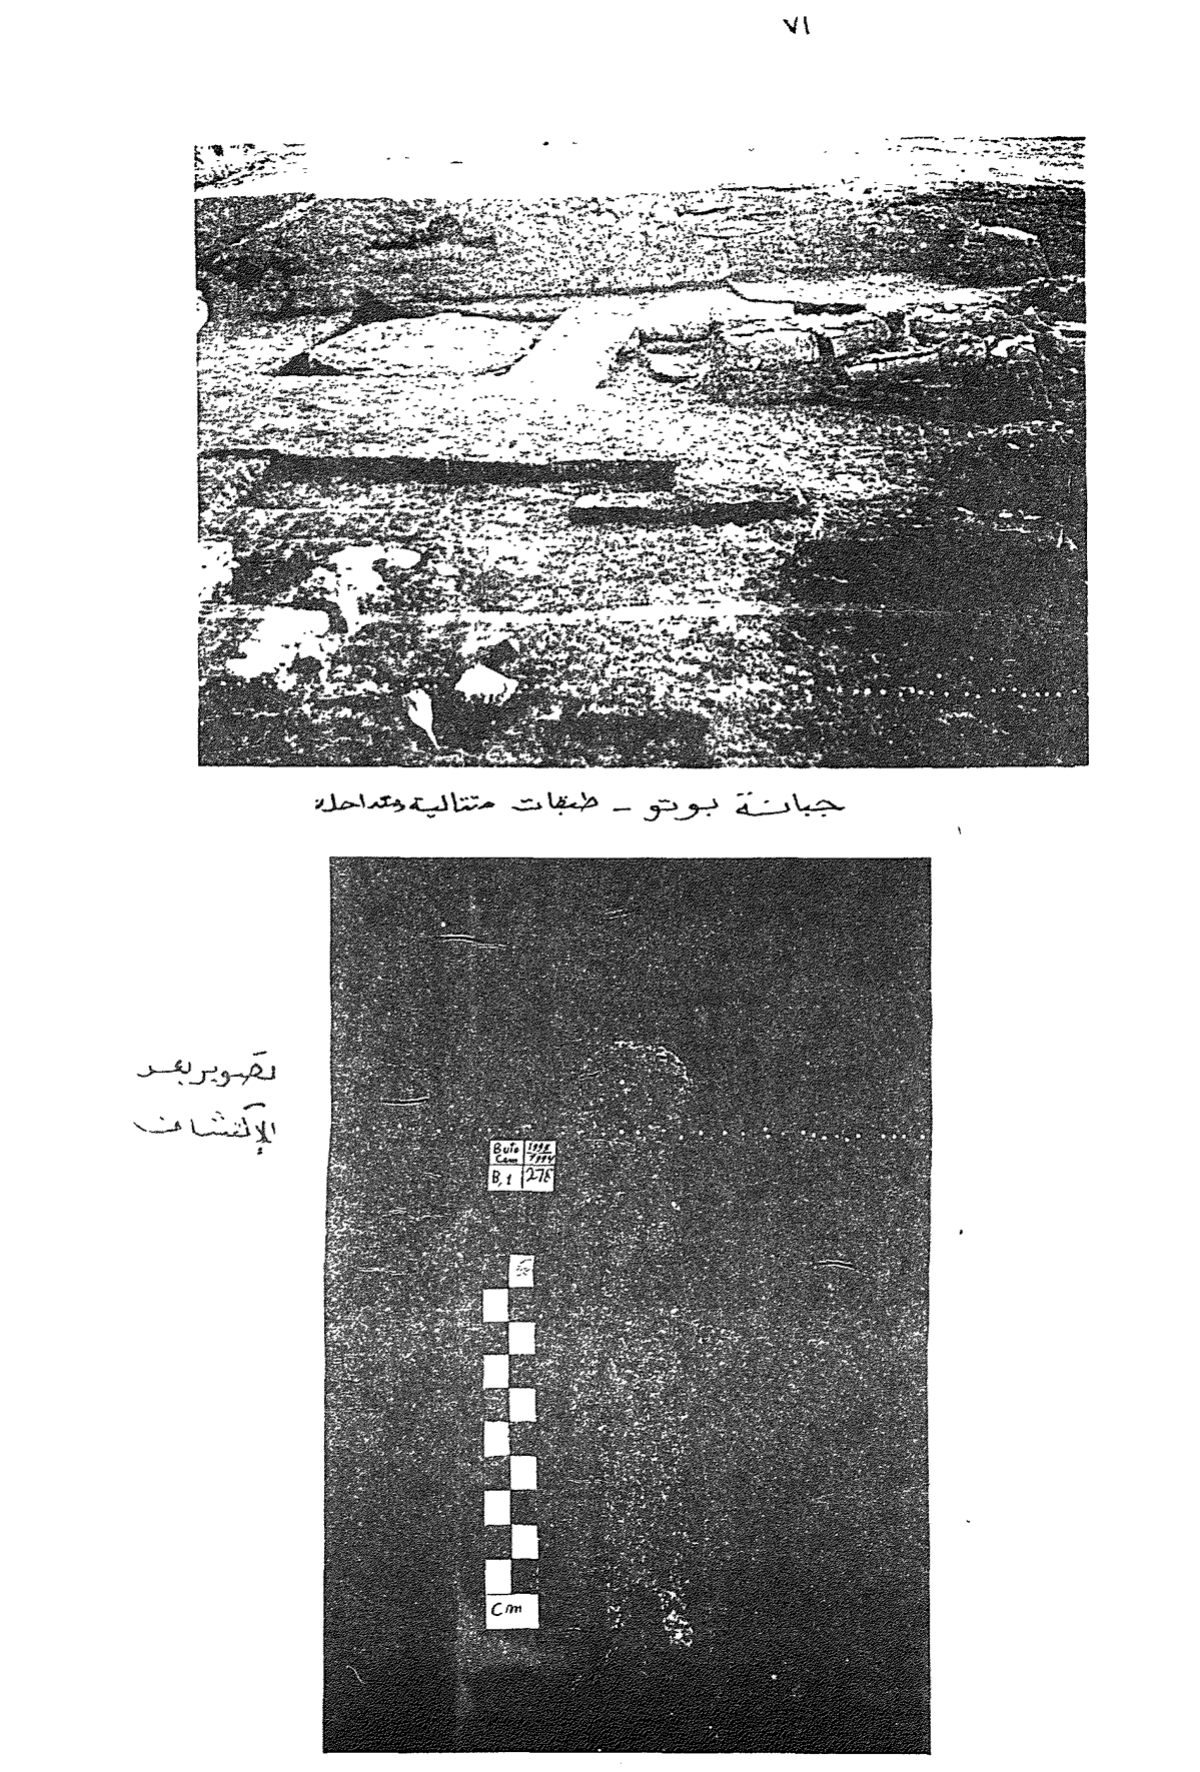 ٧١
جبانة بوتو - طبقات متتالية ومتداخلة
تصوير بعد
الإكتشاف
Buto
Cem
B,1
Cm